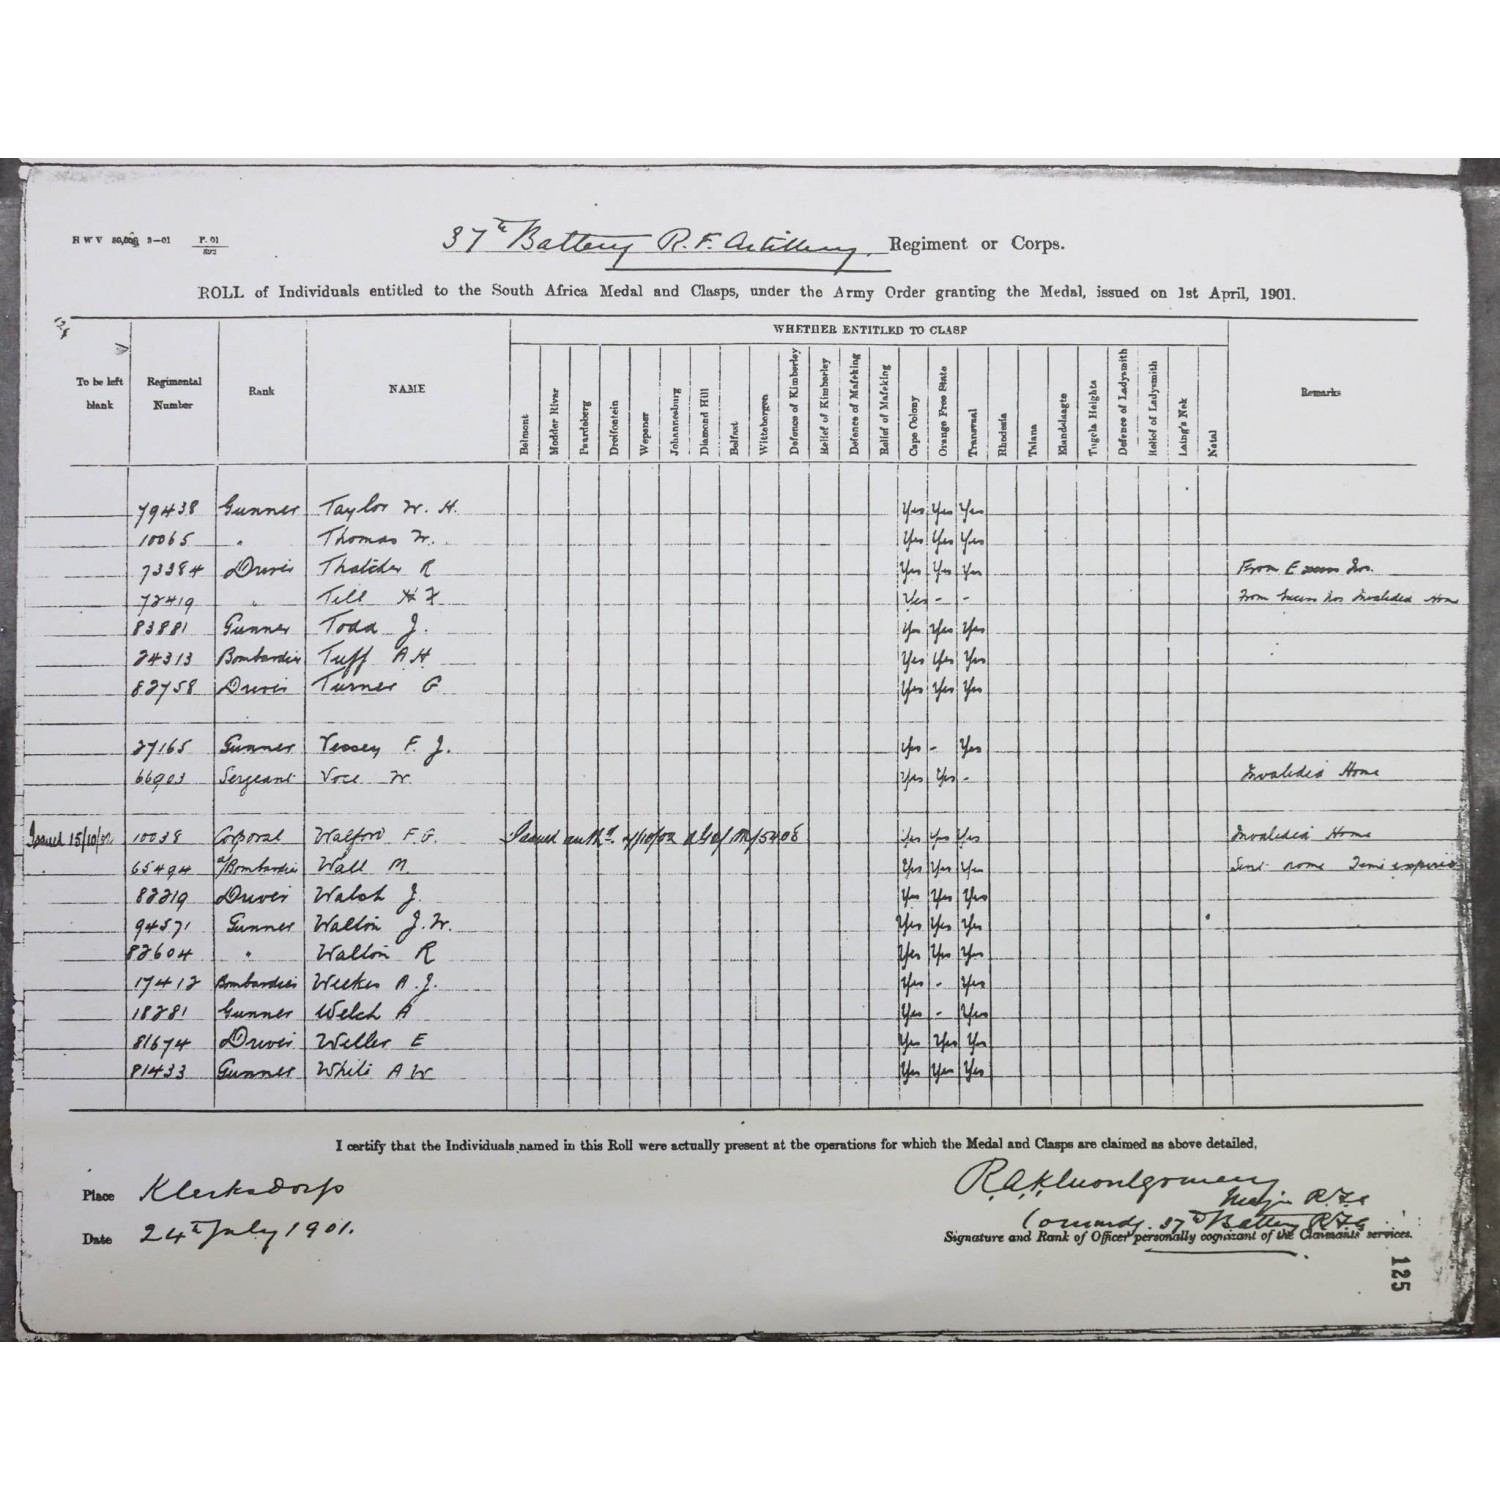 H W V 3—01 P. 01
37th Battery R. F. Artillery. Regiment or Corps.
ROLL of Individuals entitled to the South Africa Medal and Clasps, under the Army Order granting the Medal, issued on 1st April, 1901.
WHETHER ENTITLED TO CLASP
To be left blank Regimental Number Rank NAME Belmont Modder River Paardeberg Dreifontein Wepener Johannesburg Diamond Hill Belfast Wittebergen Defence of Kimberley Relief of Kimberley Defence of Mafeking Relief of Mafeking Cape Colony Orange Free State Transvaal Rhodesia Talana Elandslaagte Tugela Heights Defence of Ladysmith Relief of Ladysmith Laing's Nek Natal Remarks
79438 Gunner Taylor W. H. Yes Yes Yes
10065 " Thomas W. Yes Yes Yes
73384 Driver Thatcher R Yes Yes Yes From
72419 " Till H F Yes - - From Invalided Home
83881 Gunner Todd J. Yes Yes Yes
24313 Bombardier Tuff A H Yes Yes Yes
82758 Driver Turner G Yes Yes Yes
27165 Gunner Vessey F. J. Yes - Yes
66903 Sergeant Voce W. Yes Yes - Invalided Home
Issued 15/10/02 10038 Corporal Walford F. G. Issued auth. Yes Yes Yes Invalided Home
65494 a/Bombardier Wall M. Yes Yes Yes Sent home Time expired
82219 Driver Walsh J. Yes Yes Yes
94571 Gunner Walton J. W. Yes Yes Yes
82604 " Walton R Yes Yes Yes
17412 Bombardier Weekes A. J. Yes - Yes
18281 Gunner Welch A Yes - Yes
81674 Driver Weller E Yes Yes Yes
81433 Gunner White A W Yes Yes Yes
I certify that the Individuals named in this Roll were actually present at the operations for which the Medal and Clasps are claimed as above detailed,
Place Klerksdorp
R.A.K. Montgomery
Major R.F.A
Date 24th July 1901.
Commdg. 37th Battery R.F.A
Signature and Rank of Officer personally cognizant of the Claimants' services.
125